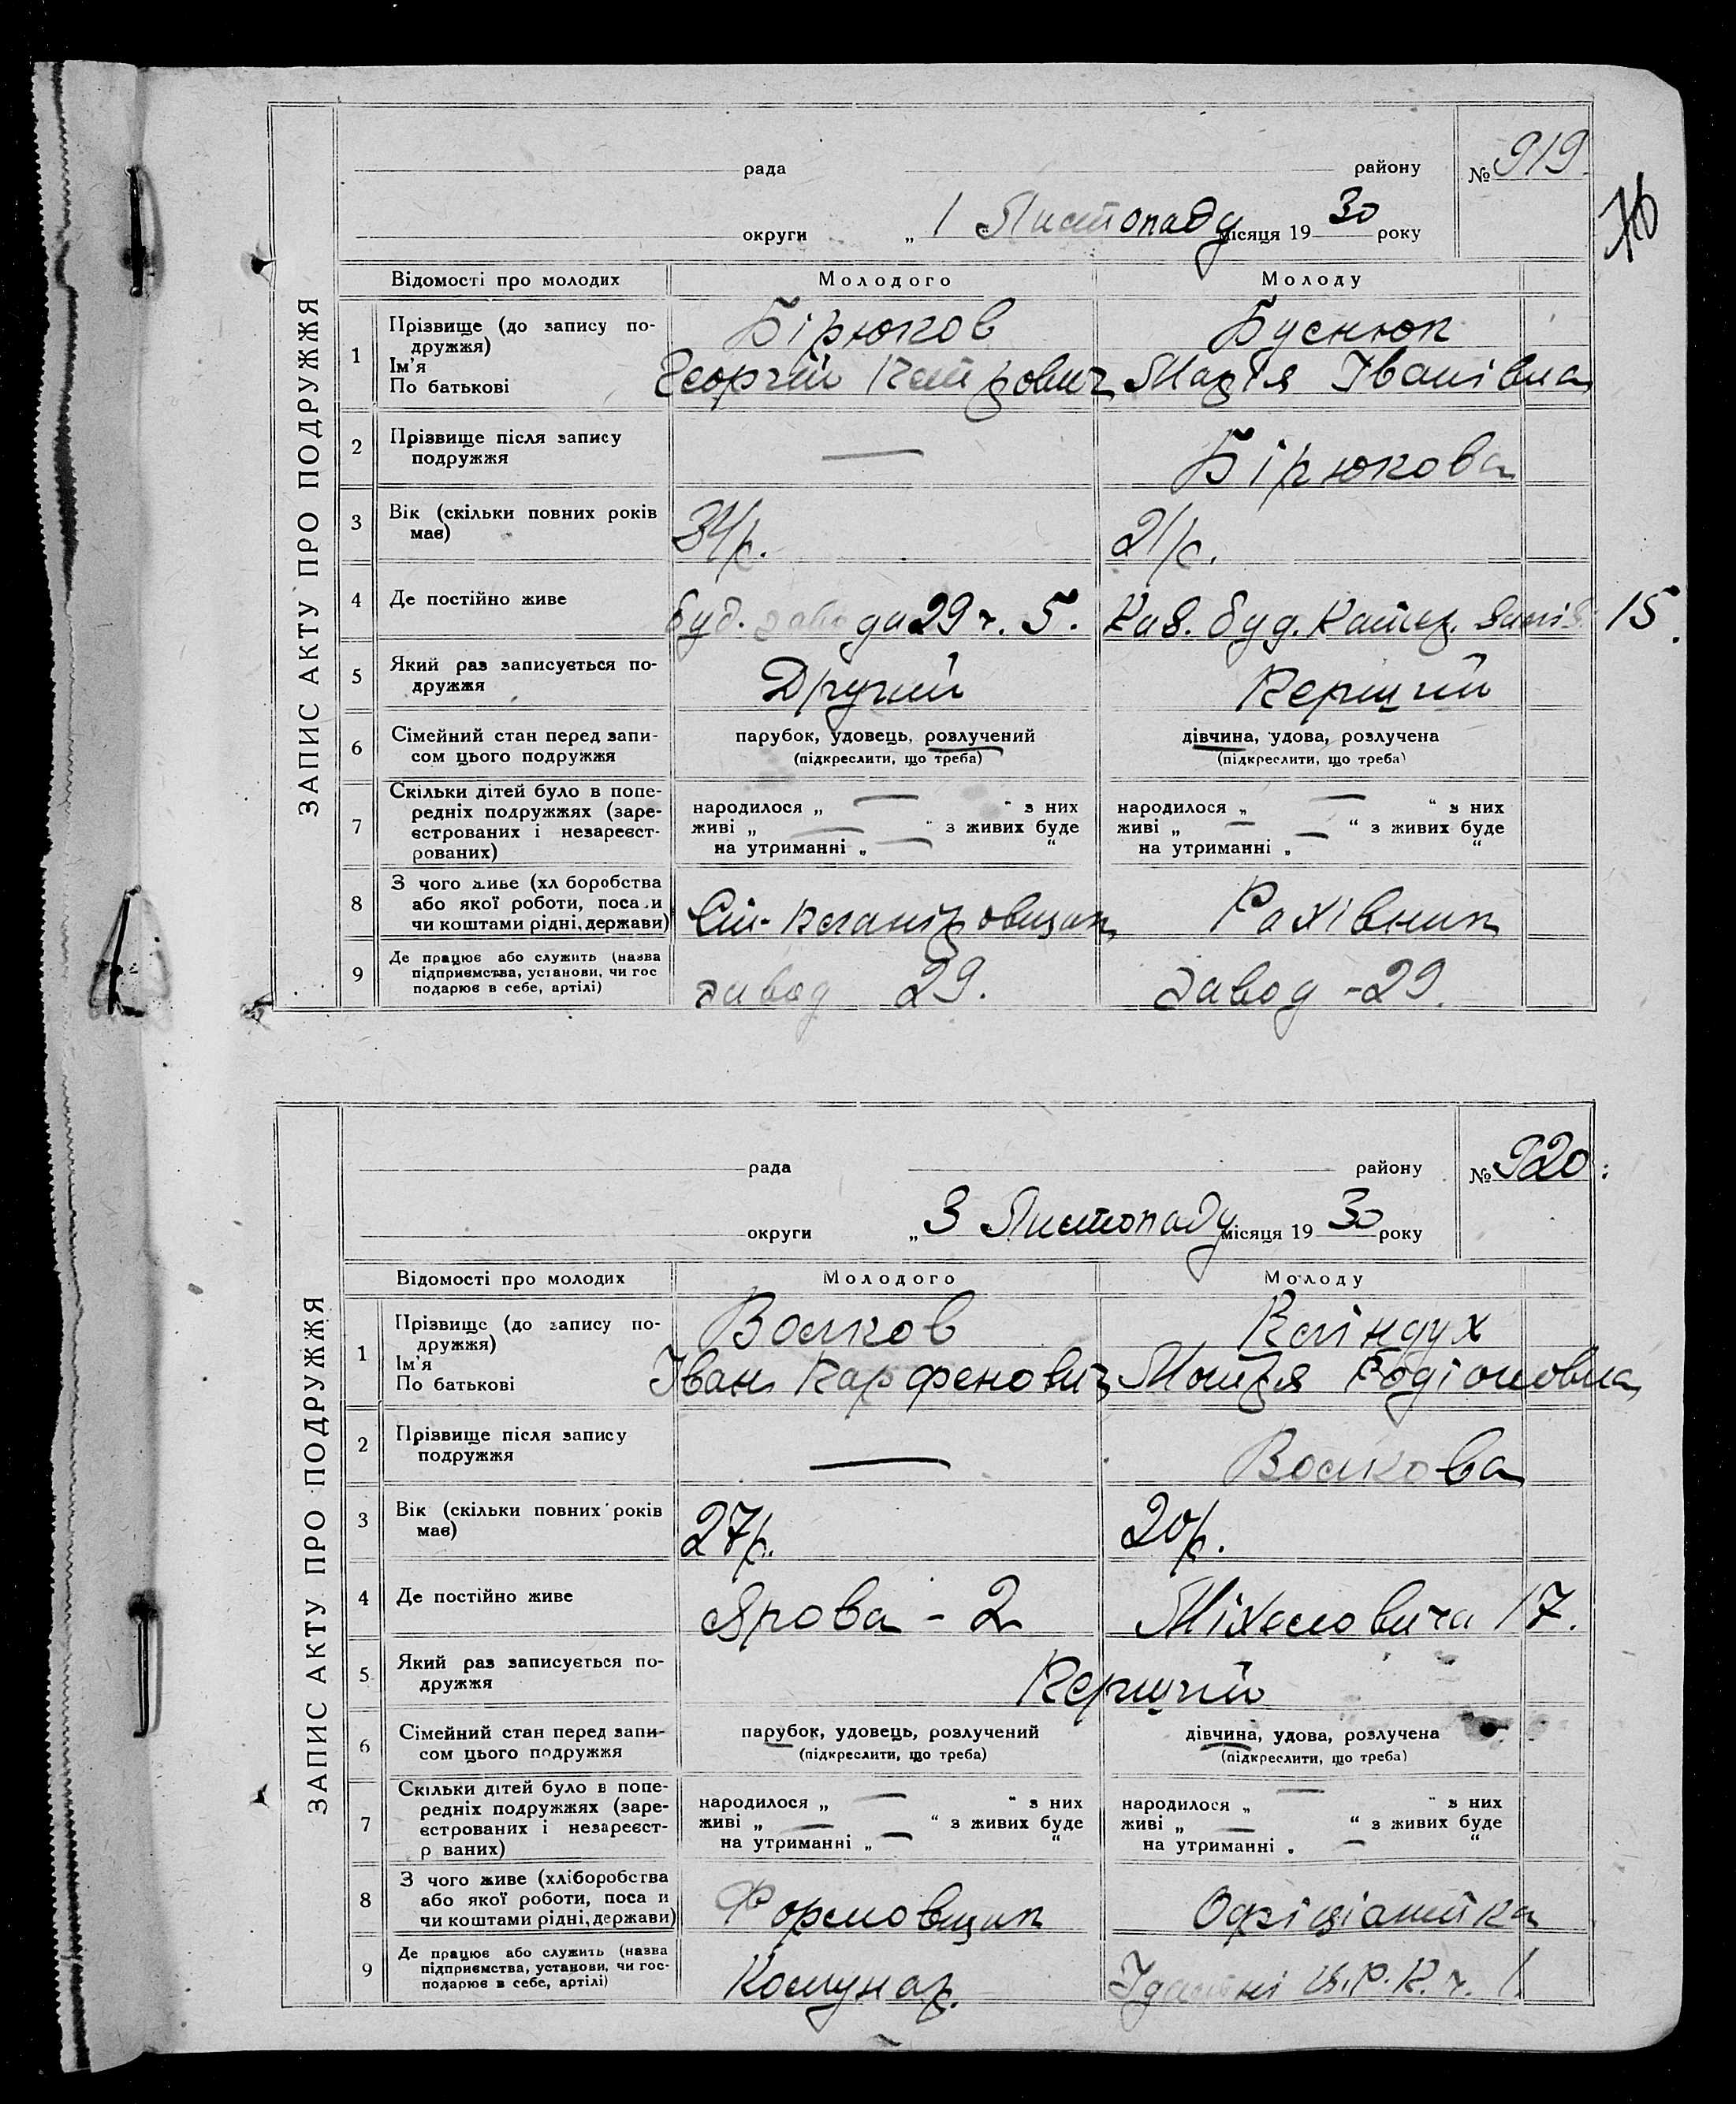 ЗАПИС АКТУ ПРО ПОДРУЖЖЯ
рада району № 919.
76
округи „ 1 Листопаду місяця 19 30 року
Відомості про молодих Молодого Молоду
1 Прізвище (до запису по-
дружжя) Бірюков Буснюк
Ім'я
По батькові Георгій Петрович Марія Іванівна
2 Прізвище після запису
подружжя — Бірюкова
3 Вік (скільки повних років
має) 34 р. 21 р.
4 Де постійно живе буд. завода 29 ч. 5. Кав. буд. 15.
5 Який раз записується по-
дружжя Другий Перший
6 Сімейний стан перед запи-
сом цього подружжя
парубок, удовець, розлучений
(підкреслити, що треба)
дівчина, удова, розлучена
(підкреслити, що треба)
7 Скільки дітей було в попе-
редніх подружжях (заре-
єстрованих і незареєст-
рованих)
народилося „ — “ з них
живі „ — “ з живих буде
на утриманні „ — “
народилося „ — “ з них
живі „ — — “ з живих буде
на утриманні „ “
8 З чого живе (хл боробства
або якої роботи, поса и
чи коштами рідні, держави) Рахівник
9 Де працює або служить (назва
підприємства, установи, чи гос
подарює в себе, артілі) завод 29. Завод - 29.
ЗАПИС АКТУ ПРО ПОДРУЖЖЯ
рада району № 920.
округи „ 3 Листопаду місяця 19 30 року
Відомості про молодих Молодого Молоду
1 Прізвище (до запису по-
дружжя) Волков
Ім'я
По батькові Іван Парфенович Мотря Родіоновна
2 Прізвище після запису
подружжя — Волкова
3 Вік (скільки повних років
має) 27 р. 20 р.
4 Де постійно живе Ярова - 2 Міхеловича 17.
5 Який раз записується по-
дружжя Перший
6 Сімейний стан перед запи-
сом цього подружжя
парубок, удовець, розлучений
(підкреслити, що треба)
дівчина, удова, розлучена
(підкреслити, що треба)
7 Скільки дітей було в попе-
редніх подружжях (заре-
єстрованих і незареєст-
р ваних)
народилося „ — “ з них
живі „ — “ з живих буде
на утриманні „ — “
народилося „ — “ з них
живі „ — “ з живих буде
на утриманні „ — “
8 З чого живе (хліборобства
або якої роботи, поса и
чи коштами рідні, держави) Формовщик Офіціантка
9 Де працює або служить (назва
підприємства, установи, чи гос-
подарює в себе, артілі) Комунар. Ц.Р.К. ч. 1.